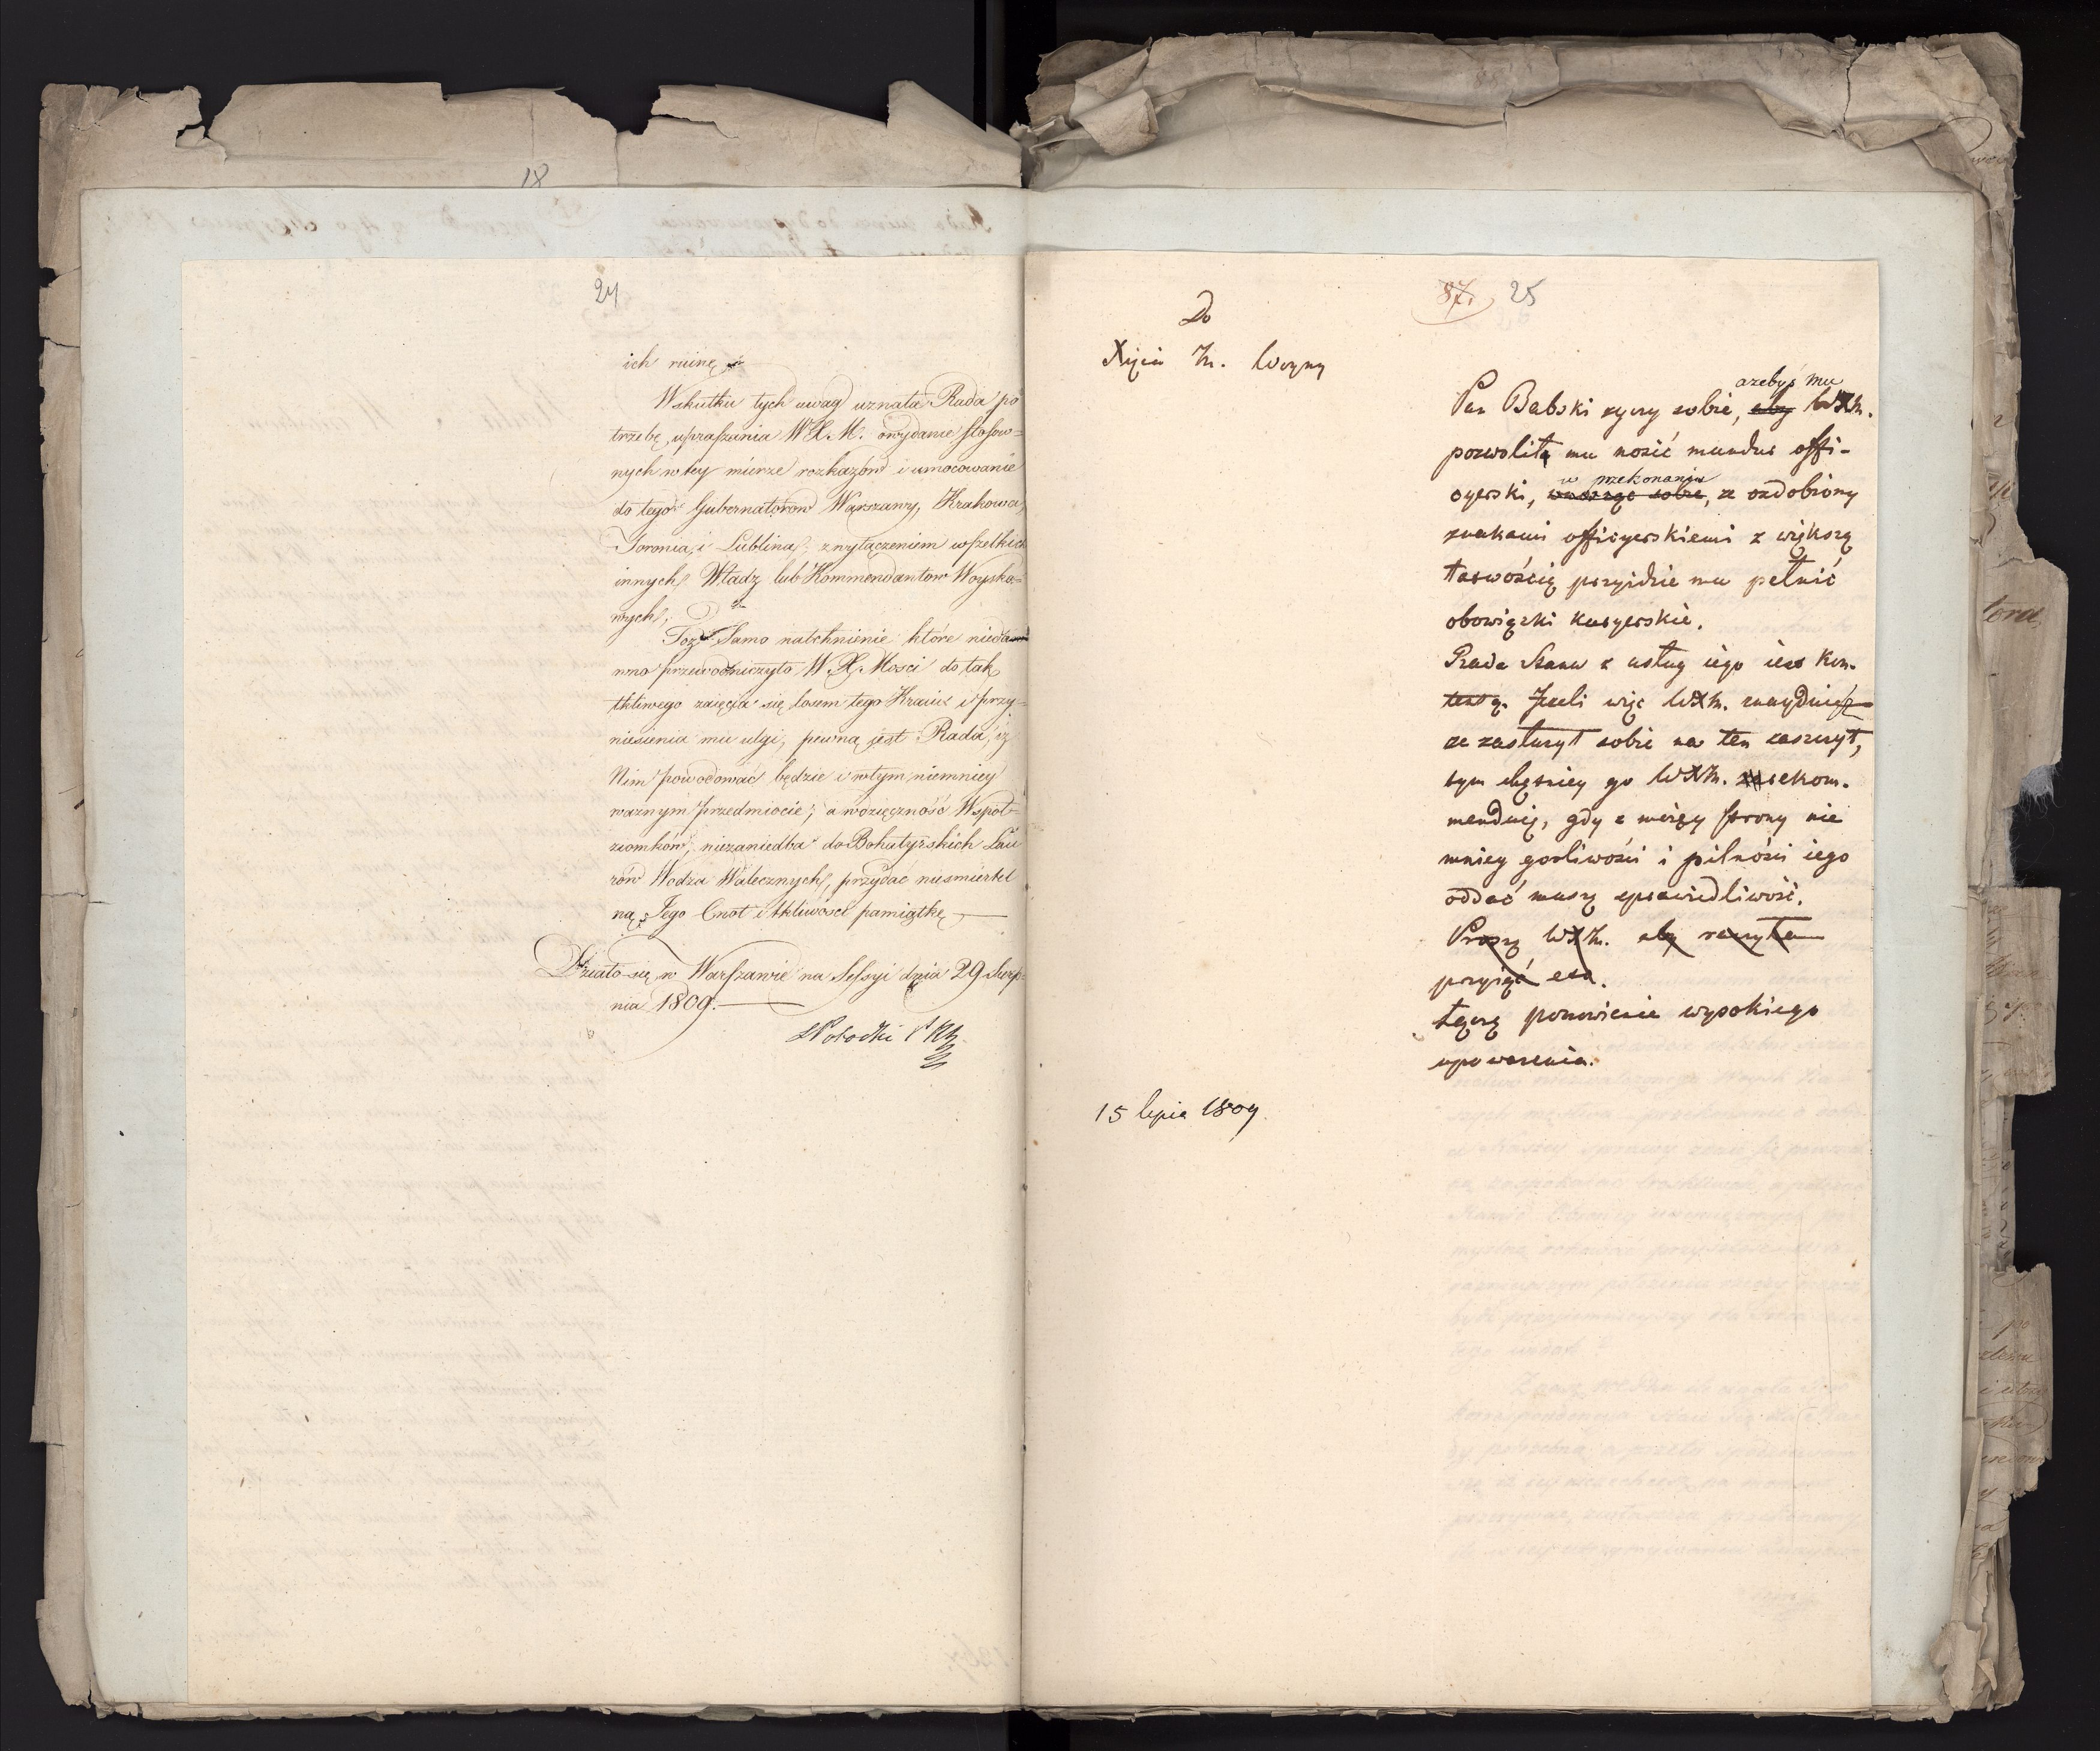 18
24
ich ruinę
Wskutku tych uwag uznała Rada po
trzebę, upraszania W.X.M. o wydanie stosow=
nych w tey mierze rozkazów i umocowanie
do tego Gubernatorow Warszawy, Krakowa,
Toronia, i Lublina, z wyłączeniem wszelkich
innych Władz lub Kommendantow Woysko=
wych.
Toż Samo natchnienie które niedaw
wno przewodniczyło W.X. Mosci do tak
tkliwego zaięcia się losem tego Kraiu i przy=
niesienia mu ulgi, pewną jest Rada, iż
Nim powodować będzie i w tym niemniey
ważnym przedmiocie; a wdzięczność Wspoł=
ziomków, niezaniedba do Bohatyrskich Lau
rów Wodza Walecznych, przydać niesmiertel
ną Jego Cnot i tkliwości pamiątkę
Działo się w Warszawie na Sessyi dnia 29 Sierp=
nia 1809.
87. 25
Do
Xięcia M. Woyny
Pan Babski życzy sobie, aby ażebyś mu WXM.
pozwolił mu nosić mundur offi-
cyerski, w przekonaniu, ze ozdobiony
znakami officyerskiemi z większą
łatwością przyidzie mu pełnić
obowiązki kuryerskie.
Rada Stanu z usług iego iest kon-
tentą. Jeżeli więc WXM. znaydzie
ze zasłużył sobie na ten zaszczyt,
tym chętniey go WXM. rekom-
menduię, gdy z moiey strony nie
mniey gorliwości i pilności iego
oddać muszę sprawiedliwość.
Proszę WXM. aby raczyła
przyiąć
łączę ponowienie wysokiego
upoważenia.
15 lipca 1809.